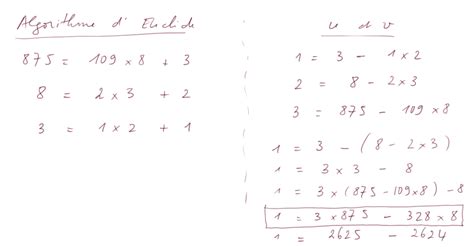 Algorithme d'Euclide
875 = 109 × 8 + 3
8 = 2 × 3 + 2
3 = 1 × 2 + 1
u d v
1 = 3 - 1 × 2
2 = 8 - 2 × 3
3 = 875 - 109 × 8
1 = 3 - (8 - 2 × 3)
1 = 3 × 3 - 8
1 = 3 × (875 - 109 × 8) - 8
1 = 3 × 875 - 328 × 8
1 = 2625 - 2624